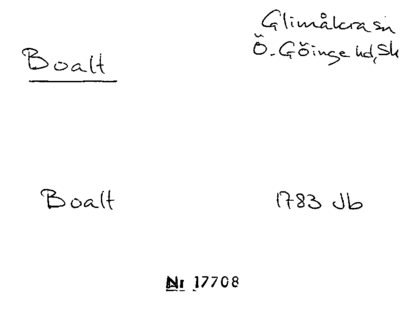 Glimåkra sn
Ö. Göinge hd, Sk
Boalt
Boalt 1783 Jb
Nr 17708